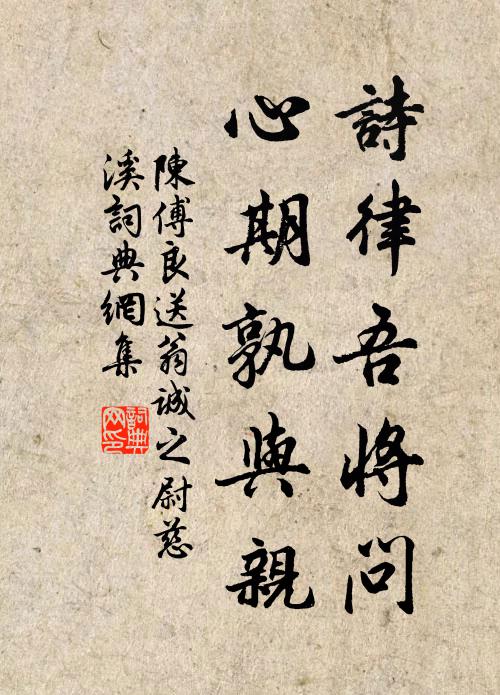 詩律吾將問
心期孰與親
陳傅良送翁誠之尉慈
溪詞典網集
詞典
网印